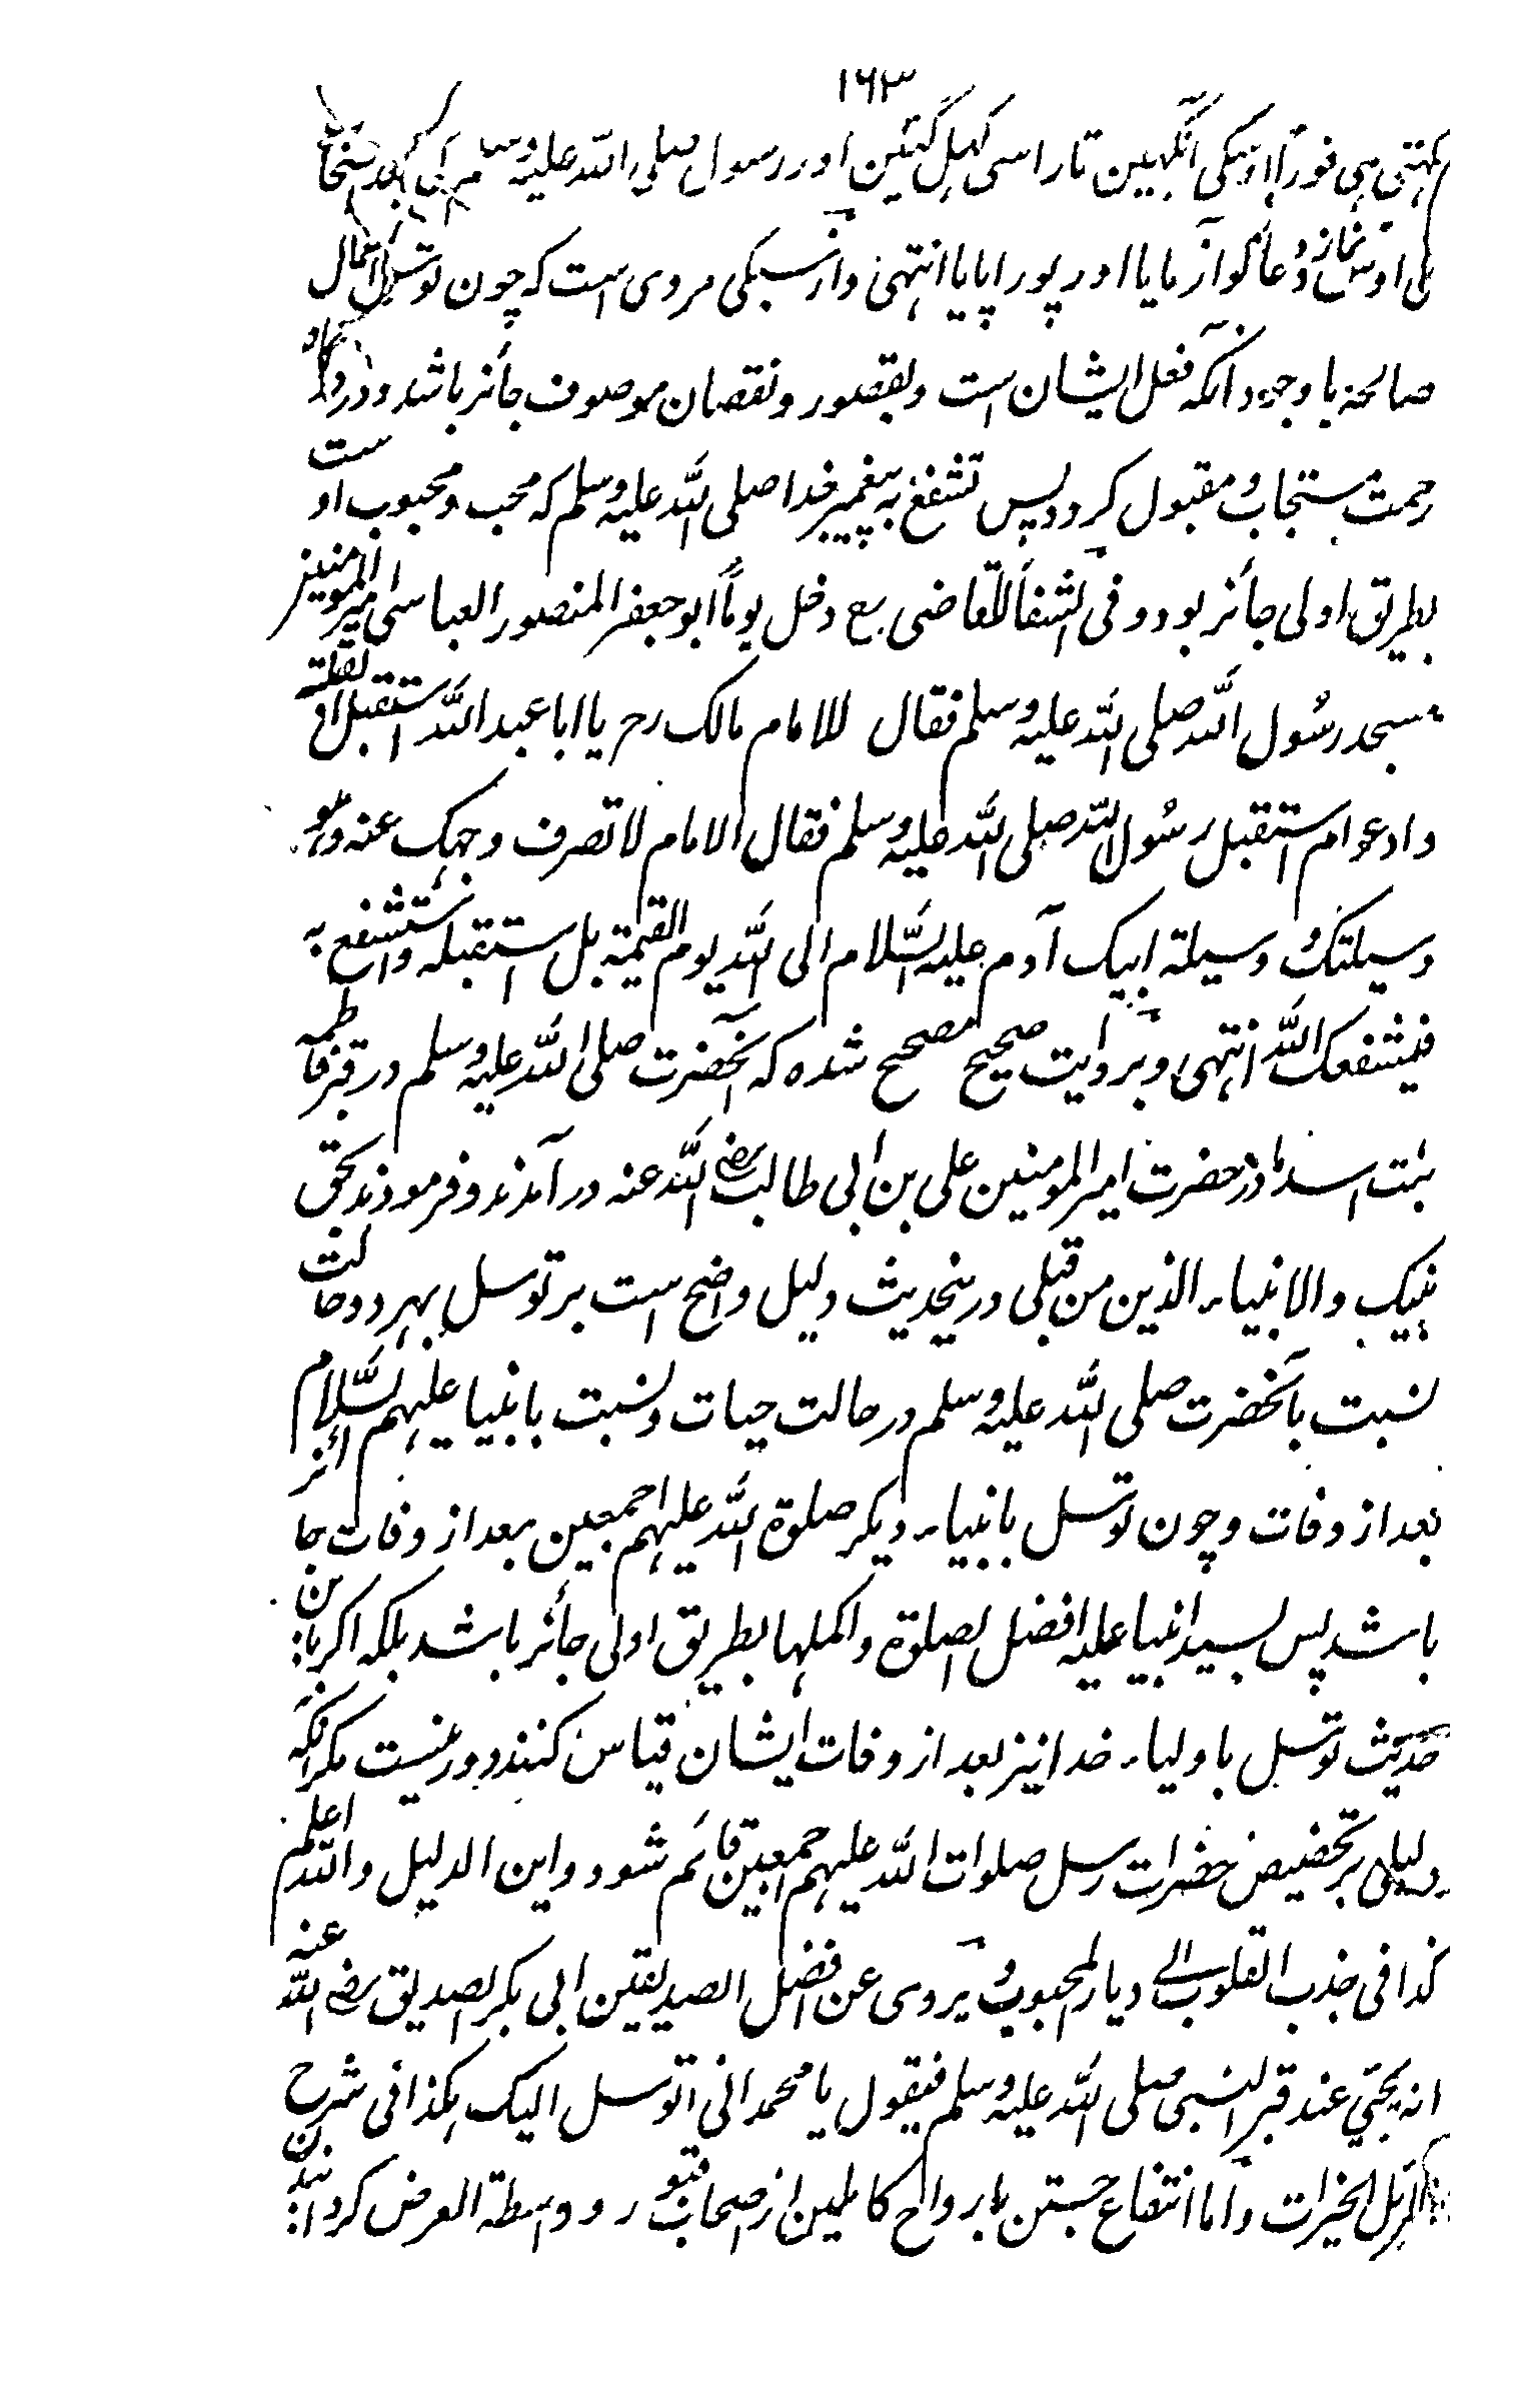 ۱۶۳
کہتی ہی فوراً اوسکی انکہین تارا سی کہل گئین اور رسول صلی اللہ علیہ وسلم کی بعد اصحاب
نی اوس نماز و دعا کو آزمایا اور پورا پایا انتہیٰ و از سبکی مروی است کہ چون توسل باعمال
صالحہ باوجود آنکہ فعل ایشان است و بقصور و نقصان موصوف جائز باشد و در درگاہ
رحمت مستجاب و مقبول کردد پس تشفع بہ پیغمبر خدا صلی اللہ علیہ وسلم کہ محب و محبوب اوست
بطریق اولی جائز بود و فی الشفا للقاضی رح دخل یوماً ابو جعفر المنصور العباسی امیر المومنین
مسجد رسول اللہ صلی اللہ علیہ وسلم فقال للامام مالک رح یا ابا عبد اللہ استقبل القبلة
وادعو ام استقبل رسول اللہ صلی اللہ علیہ وسلم فقال الامام لا تصرف وجہک عنہ وہو
وسیلتک وسیلة ابیک آدم علیہ السلام الی اللہ یوم القیمة بل استقبلہ واستشفع بہ
فیشفعک اللہ انتہیٰ و بروایت صحیح مصحح شدہ کہ آنحضرت صلی اللہ علیہ وسلم در قبر فاطمہ
بنت اسد مادر حضرت امیر المومنین علی بن ابی طالب رضی اللہ عنہ در آمدند و فرمودند بحق
نبیک والانبیاء الذین من قبلی درینحدیث دلیل واضح است بر توسل بہر دو حالت
نسبت بآنحضرت صلی اللہ علیہ وسلم در حالت حیات و نسبت بانبیا علیہم السلام
بعد از وفات و چون توسل بانبیاء دیکر صلوة اللہ علیہم اجمعین بعد از وفات جائز
باشد پس بسید انبیا علیہ افضل الصلوة واکملہا بطریق اولی جائز باشد بلکہ اکر باین
حدیث توسل باولیاء خدا نیز بعد از وفات ایشان قیاس کنند دور نیست مکر آنکہ
دلیلی بر تخصیص حضرات رسل صلوات اللہ علیہم اجمعین قائم شود واین الدلیل واللہ اعلم
کذا فی جذب القلوب الی دیار المحبوب و یروی عن افضل الصدیقین ابی بکر الصدیق رضی اللہ عنہ
انہ یجیٔ عند قبر النبی صلی اللہ علیہ وسلم فیقول یا محمد انی اتوسل الیک ہکذا فی شرح
الخیرات و اما انتفاع جستن بارواح کاملین از اصحاب قبور و واسطة العرض کردانیدن